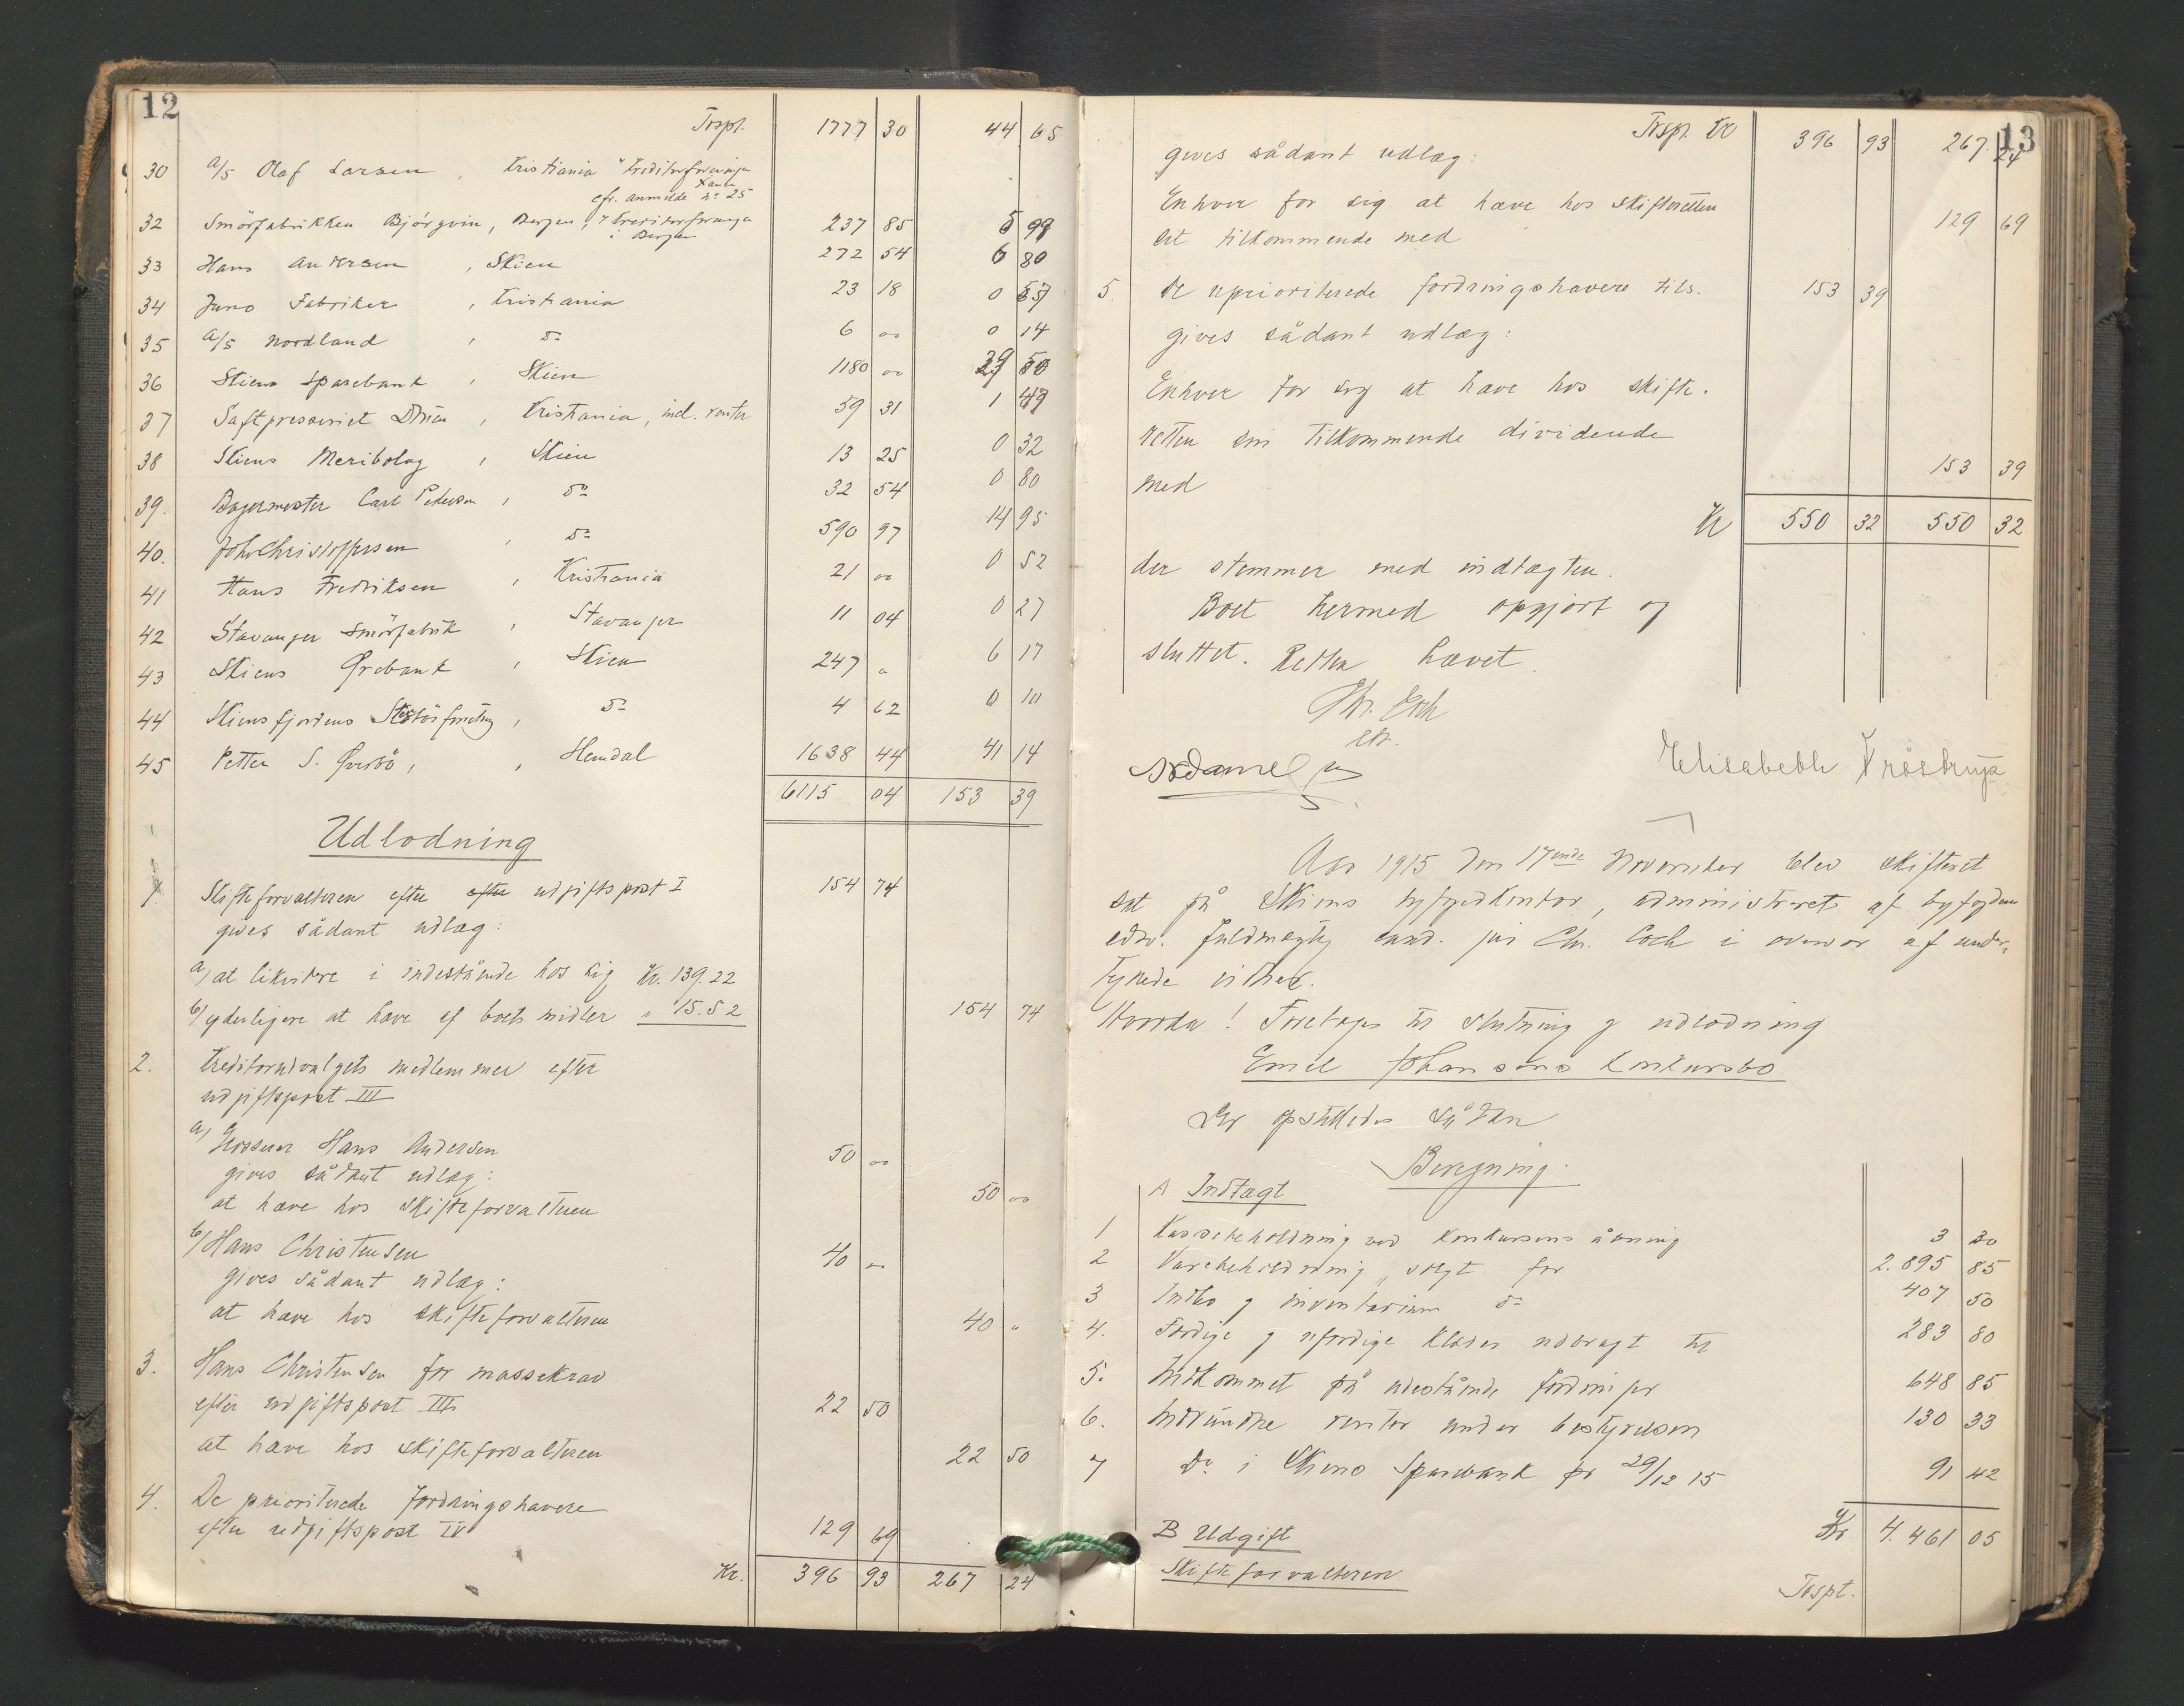 12
Trspt. 1777 30 44 65
30 A/S Olaf Larsen, Kristiania v/ Kreditorforeningen
cfr. anmelde nr 25
32 Smörfabrikken Björgvin, Bergen, v/ Kreditorforeningen i Bergen 237 85 5 99
33 Hans Andersen, Skien 272 54 6 80
34 Juno Fabriker, Kristiania 23 18 0 57
35 A/S Nordland, do 6 00 0 14
36 Skiens Sparebank, Skien 1180 00 29 50
37 Saftpresseriet, Kristiania, incl. renter 59 31 1 49
38 Skiens Meribolag, Skien 13 25 0 32
39. Bagermester Carl Petersen, do 32 54 0 80
40. Joh. Christoffersen, do 590 97 14 95
41 Hans Fredriksen, Kristiania 21 00 0 52
42 Stavanger Smörfabrik, Stavanger 11 04 0 27
43 Skiens Örebank, Skien 247 " 6 17
44 Skiensfjordens, do 4 62 0 10
45 Petter S., Hemdal 1638 44 41 14
6115 04 153 39
Udlodning
1. Skifteforvalteren efter efter udgiftspost I 154 74
gives sådant udlæg:
a) at likvidere i indestående hos sig Kr. 139.22
b) yderligere at hæve af boets midler " 15.52 154 74
2. Kreditorudvalgets medlemmer efter
udgiftspost III
a) Grosserer Hans Andersen 50 00
gives sådant udlæg:
at hæve hos skifteforvalteren 50 00
b) Hans Christensen 40 00
gives sådant udlæg:
at hæve hos skifteforvalteren 40 "
3. Hans Christensen for massekrav
efter udgiftspost III 22 50
at hæve hos skifteforvalteren 22 50
4. De prioriterede fordringshavere
efter udgiftspost IV 129 69
Kr. 396 93 267 24
13
Trspt. Kr 396 93 267. 24
gives sådant udlæg:
Enhver for sig at hæve hos skifteretten
sit tilkommende med 129 69
5. De uprioriterede fordringshavere tils. 153 39
gives sådant udlæg:
Enhver for sig at hæve hos skifte-
retten sin tilkommende dividende
med 153 39
Kr 550 32 550 32
der stemmer med indtægten.
Boet hermed opgjort og
sluttet. Retten hævet.
Chr. Coch
cst.
Elisabeth Tröstrup
Aar 1915 den 17ende November blev skifteret
sat på Skiens byfogedkontor, administreret af byfogdens
edsv. fuldmægtig cand. jur Chr. Coch i overvær af under-
tegnede vidner.
Hvorda! Foretages til slutning og udlodning
Emil Johansens konkursbo
Der opstilledes sådan
Beregning.
A Indtægt
1 Kassebeholdning ved konkursens åbning 3 30
2 Varebeholdning, solgt for 2.895 85
3 Indbo og inventarium do 407 50
4. Færdige og ufærdige klæder udbragt til 283 80
5. Indkommet på udestående fordringer 648 85
6. Indvundne renter under bestyrelsen 130 33
7 Do i Skiens Sparebank pr 29/12 15 91 42
Kr 4.461 05
B Udgift
Skifteforvalteren
Trspt.